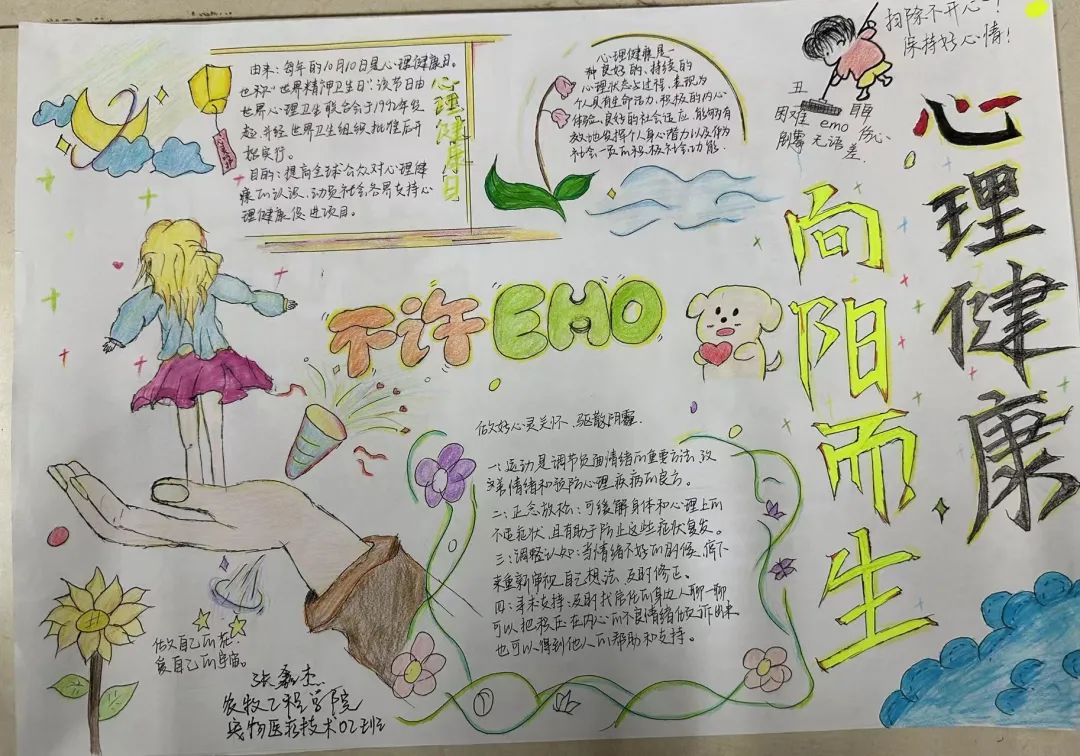 由来：每年的10月10日是心理健康日。
也称"世界精神卫生日"，该节日由
世界心理卫生联合会于1992年发
起，并经世界卫生组织批准后开
始实行。
目的：提高全球公众对心理健
康的认识，动员社会各界支持心
理健康促进项目。
心理健康日
心理健康是一
种良好的、持续的
心理状态与过程，表现为
个人具有生命活力，积极的内心
体验，良好的社会适应，能够有
效地发挥个人身心潜力以及作为
社会一员的积极社会功能。
扫除不开心！
保持好心情！
丑
困难 emo
无语
差
心理健康
向阳而生
不许EMO
做好心灵关怀，驱散阴霾.
一：运动是调节负面情绪的重要方法，改
善情绪和预防心理疾病的良方。
二：正念放松：可缓解身体和心理上的
不适症状，且有助于防止这些症状复发。
三：调整认知：当情绪不好的时候，停下
来重新审视自己想法，及时修正。
四：寻求支持：及时找信任的身边人聊一聊
可以把积压在内心的不良情绪倾诉出来
也可以得到他人的帮助和支持。
做自己的花
爱自己的宇宙。
张磊杰
农牧工程学院
宠物医疗技术02班